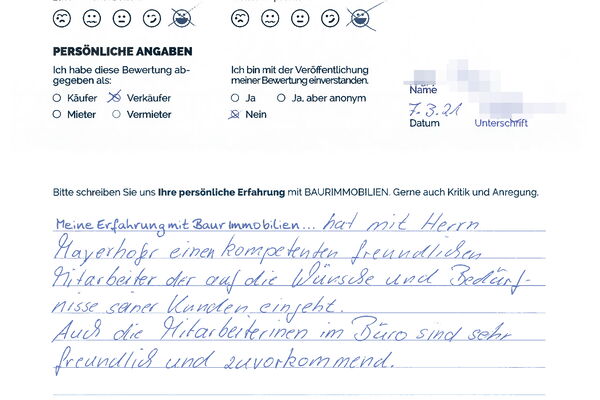 PERSÖNLICHE ANGABEN
Ich habe diese Bewertung ab-
gegeben als:
Käufer Verkäufer
Mieter Vermieter
Ich bin mit der Veröffentlichung
meiner Bewertung einverstanden.
Ja Ja, aber anonym
Nein
Name
7.3.21
Datum Unterschrift
Bitte schreiben Sie uns Ihre persönliche Erfahrung mit BAURIMMOBILIEN. Gerne auch Kritik und Anregung.
Meine Erfahrung mit Baur Immobilien... hat mit Herrn
Mayerhofer einen kompetenten freundlichen
Mitarbeiter der auf die Wünsche und Bedürf-
nisse seiner Kunden eingeht.
Auch die Mitarbeiterinen im Büro sind sehr
freundlich und zuvorkommend.